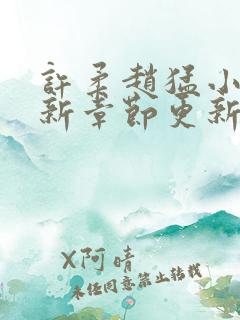 許柔趙猛小
新章節更新
X阿晴
未经同意禁止转载